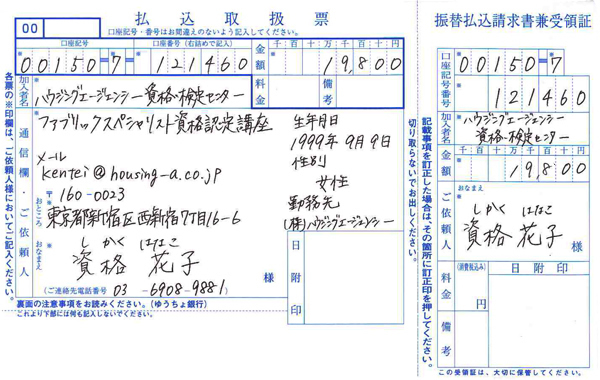 00
払込取扱票
口座番号・番号はお間違えのないよう記入してください。
口座記号
口座番号(右詰めで記入)
00150=7=
121460
金額
千百十万千百十円
19,800
加入者名
ハウジングエージェンシー資格・検定センター
料金
備考
通信欄・ご依頼人
ファブリックスペシャリスト資格認定講座
生年月日
1999年9月9日
性別
女性
勤務先
(株)ハウジングエージェンシー
メール
kentei@housing-a.co.jp
〒160-0023
おところ
東京都新宿区西新宿7丁目16-6
おなまえ
しかく はなこ
資格 花子
様
(ご連絡先電話番号 03-6908-9881)
日附印
裏面の注意事項をお読みください。(ゆうちょ銀行)
これより下部には何も記入しないでください。
各票の※印欄は、ご依頼人様においてご記入ください。
記載事項を訂正した場合は、その箇所に訂正印を押してください。
切り取らないでお出しください。
振替払込請求書兼受領証
口座記号番号
00150=7=
121460
加入者名
ハウジングエージェンシー
資格・検定センター
金額
千百十万千百十円
19,800
ご依頼人
おなまえ
しかく はなこ
資格 花子
様
料金
(消費税込み)
円
日附印
備考
この受領証は、大切に保管してください。